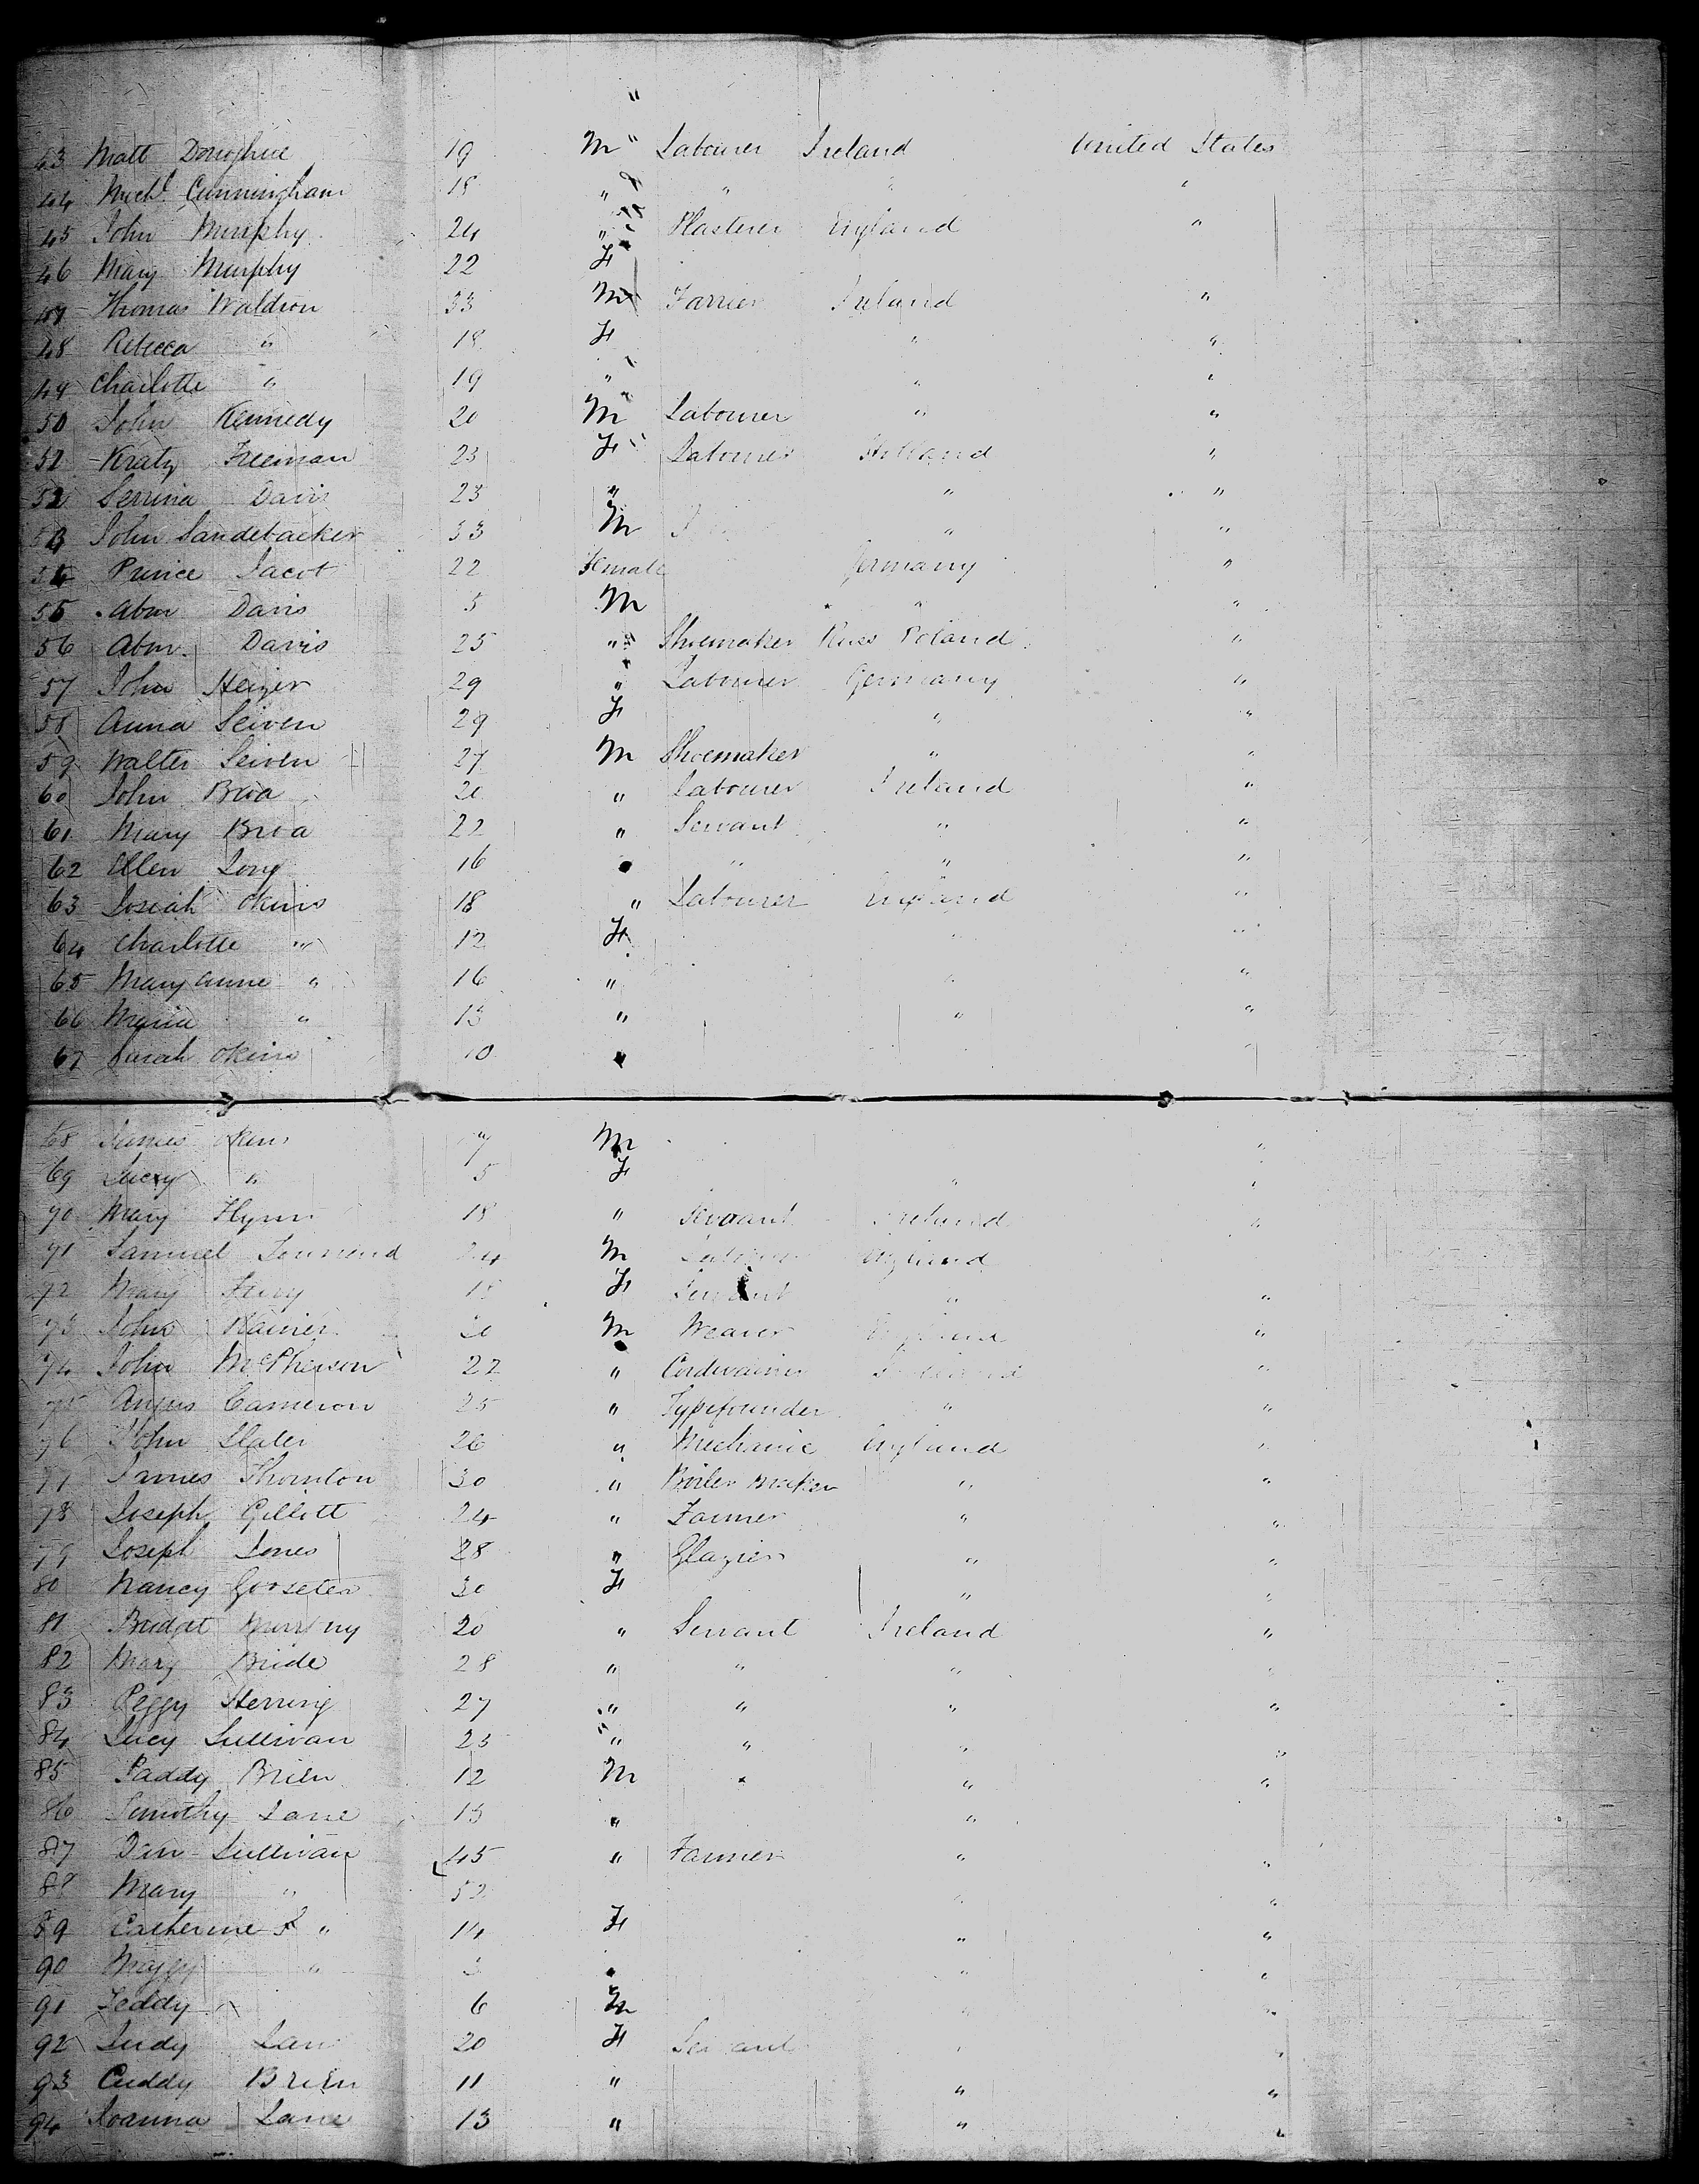 "
43 Matt Donoghue 19 M " Labourer Ireland United States
44 Mich.l Cunningham 18 " " " "
45 John Murphy 24 " Plasterer England "
46 Mary Murphy 22 F
47 Thomas Waldron 33 M Farrier Ireland "
48 Rebecca " 18 F " "
49 Charlotte " 19 " " "
50 John Kennedy 20 M Labourer " "
51 Kraty Freeman 23 F Labourer Holland "
52 Davis 23 " " "
53 John Sandebacker 33 M " "
54 Prince Jacob 22 Female Germany "
55 Abm Davis 5 M " "
56 Abm. Davis 25 " Shoemaker Russ Poland "
57 John Heizer 29 " Labourer Germany "
58 Anna Seiven 29 F " "
59 Walter Seiven 27 M Shoemaker " "
60 John Broa 20 " Labourer Ireland "
61 Mary Broa 22 " Servant " "
62 Ellen Long 16 " " "
63 Josiah Okins 18 " Labourer England "
64 Charlotte " 12 F " "
65 Mary Anne " 16 " " "
66 Maria " 13 " " "
67 Sarah Okins 10 " "
68 James Okins 7 M "
69 Lucy " 5 F " "
70 Mary Flynn 18 " Servant Ireland "
71 Samuel Townsend 24 M Labourer England
72 Mary 18 F Servant " "
73 John Hainer 20 M Weaver England "
74 John McPherson 22 " Cordwainer "
75 Angus Cameron 25 " Typefounder " "
76 John Slater 26 " Mechanic England "
77 James Thornton 30 " Boiler maker " "
78 Joseph Gillott 24 " Farmer " "
79 Joseph Jones 28 " Glazier " "
80 Nancy 30 F " "
81 Bridget 20 " Servant Ireland "
82 Mary Bride 28 " " " "
83 Peggy Herring 27 " " " "
84 Lucy Sullivan 25 " " " "
85 Paddy Brien 12 M " " "
86 Timothy Lane 13 " "
87 Dan Sullivan 45 " Farmer " "
88 Mary " 52 " "
89 Catherine S " 14 F " "
90 " 3 " " "
91 Teddy 6 M " "
92 Judy Lane 20 F Servant " "
93 Cuddy Brien 11 " " "
94 Joanna Lane 13 " " "